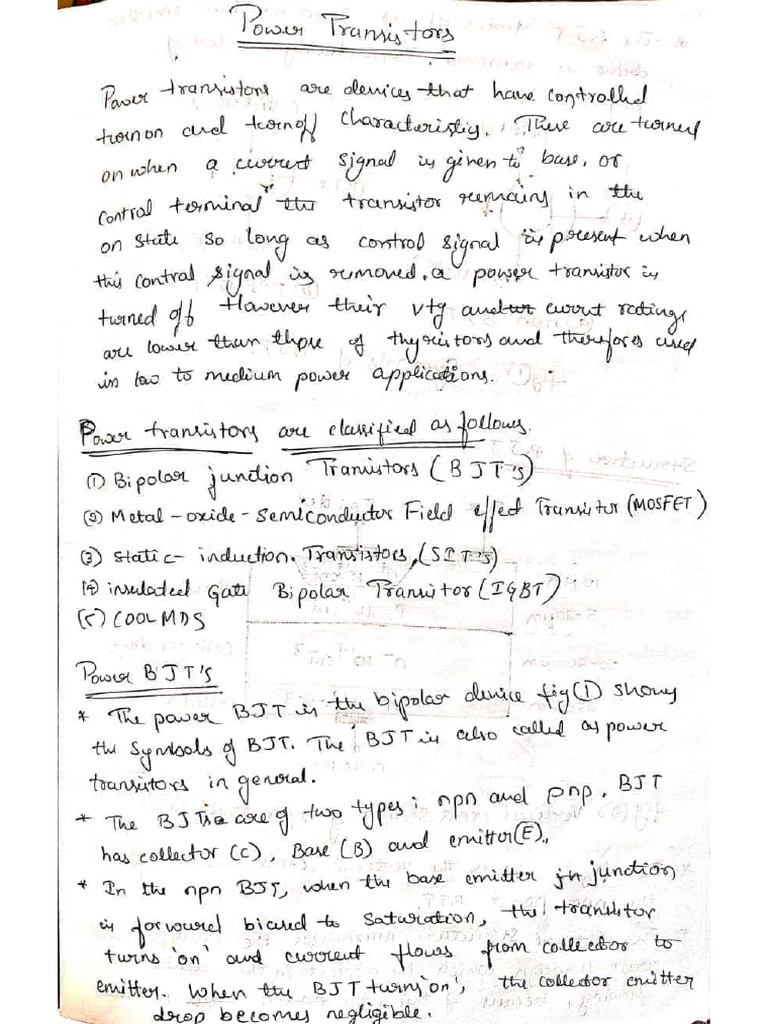 Power Transistors
Power transistors are devices that have controlled
turnon and turnoff characteristics. These are turned
on when a current signal is given to base, or
control terminal the transistor remains in the
on state so long as control signal is present when
this control signal is removed, a power transistor is
turned off However their vtg and current ratings
are lower than those of thyristors and therefore used
in low to medium power applications.
Power transistors are classified as follows.
(1) Bipolar junction Transistors (BJT's)
(2) Metal-oxide-semiconductor Field effect Transistor (MOSFET)
(3) Static-induction. Transistors, (SIT'S)
(4) insulated Gate Bipolar Transistor (IGBT)
(5) COOLMDS
Power BJT'S
* The power BJT is the bipolar device fig(1) shows
the symbols of BJT. The BJT is also called as power
transistors in general.
* The BJTs are of two types; npn and pnp. BJT
has collector (C), Base (B) and emitter (E).,
* In the npn BJT, when the base emitter junction
is forward biased to saturation, the transistor
turns 'on' and current flows from collector to
emitter. When the BJT turns 'on', the collector emitter
drop becomes negligible.